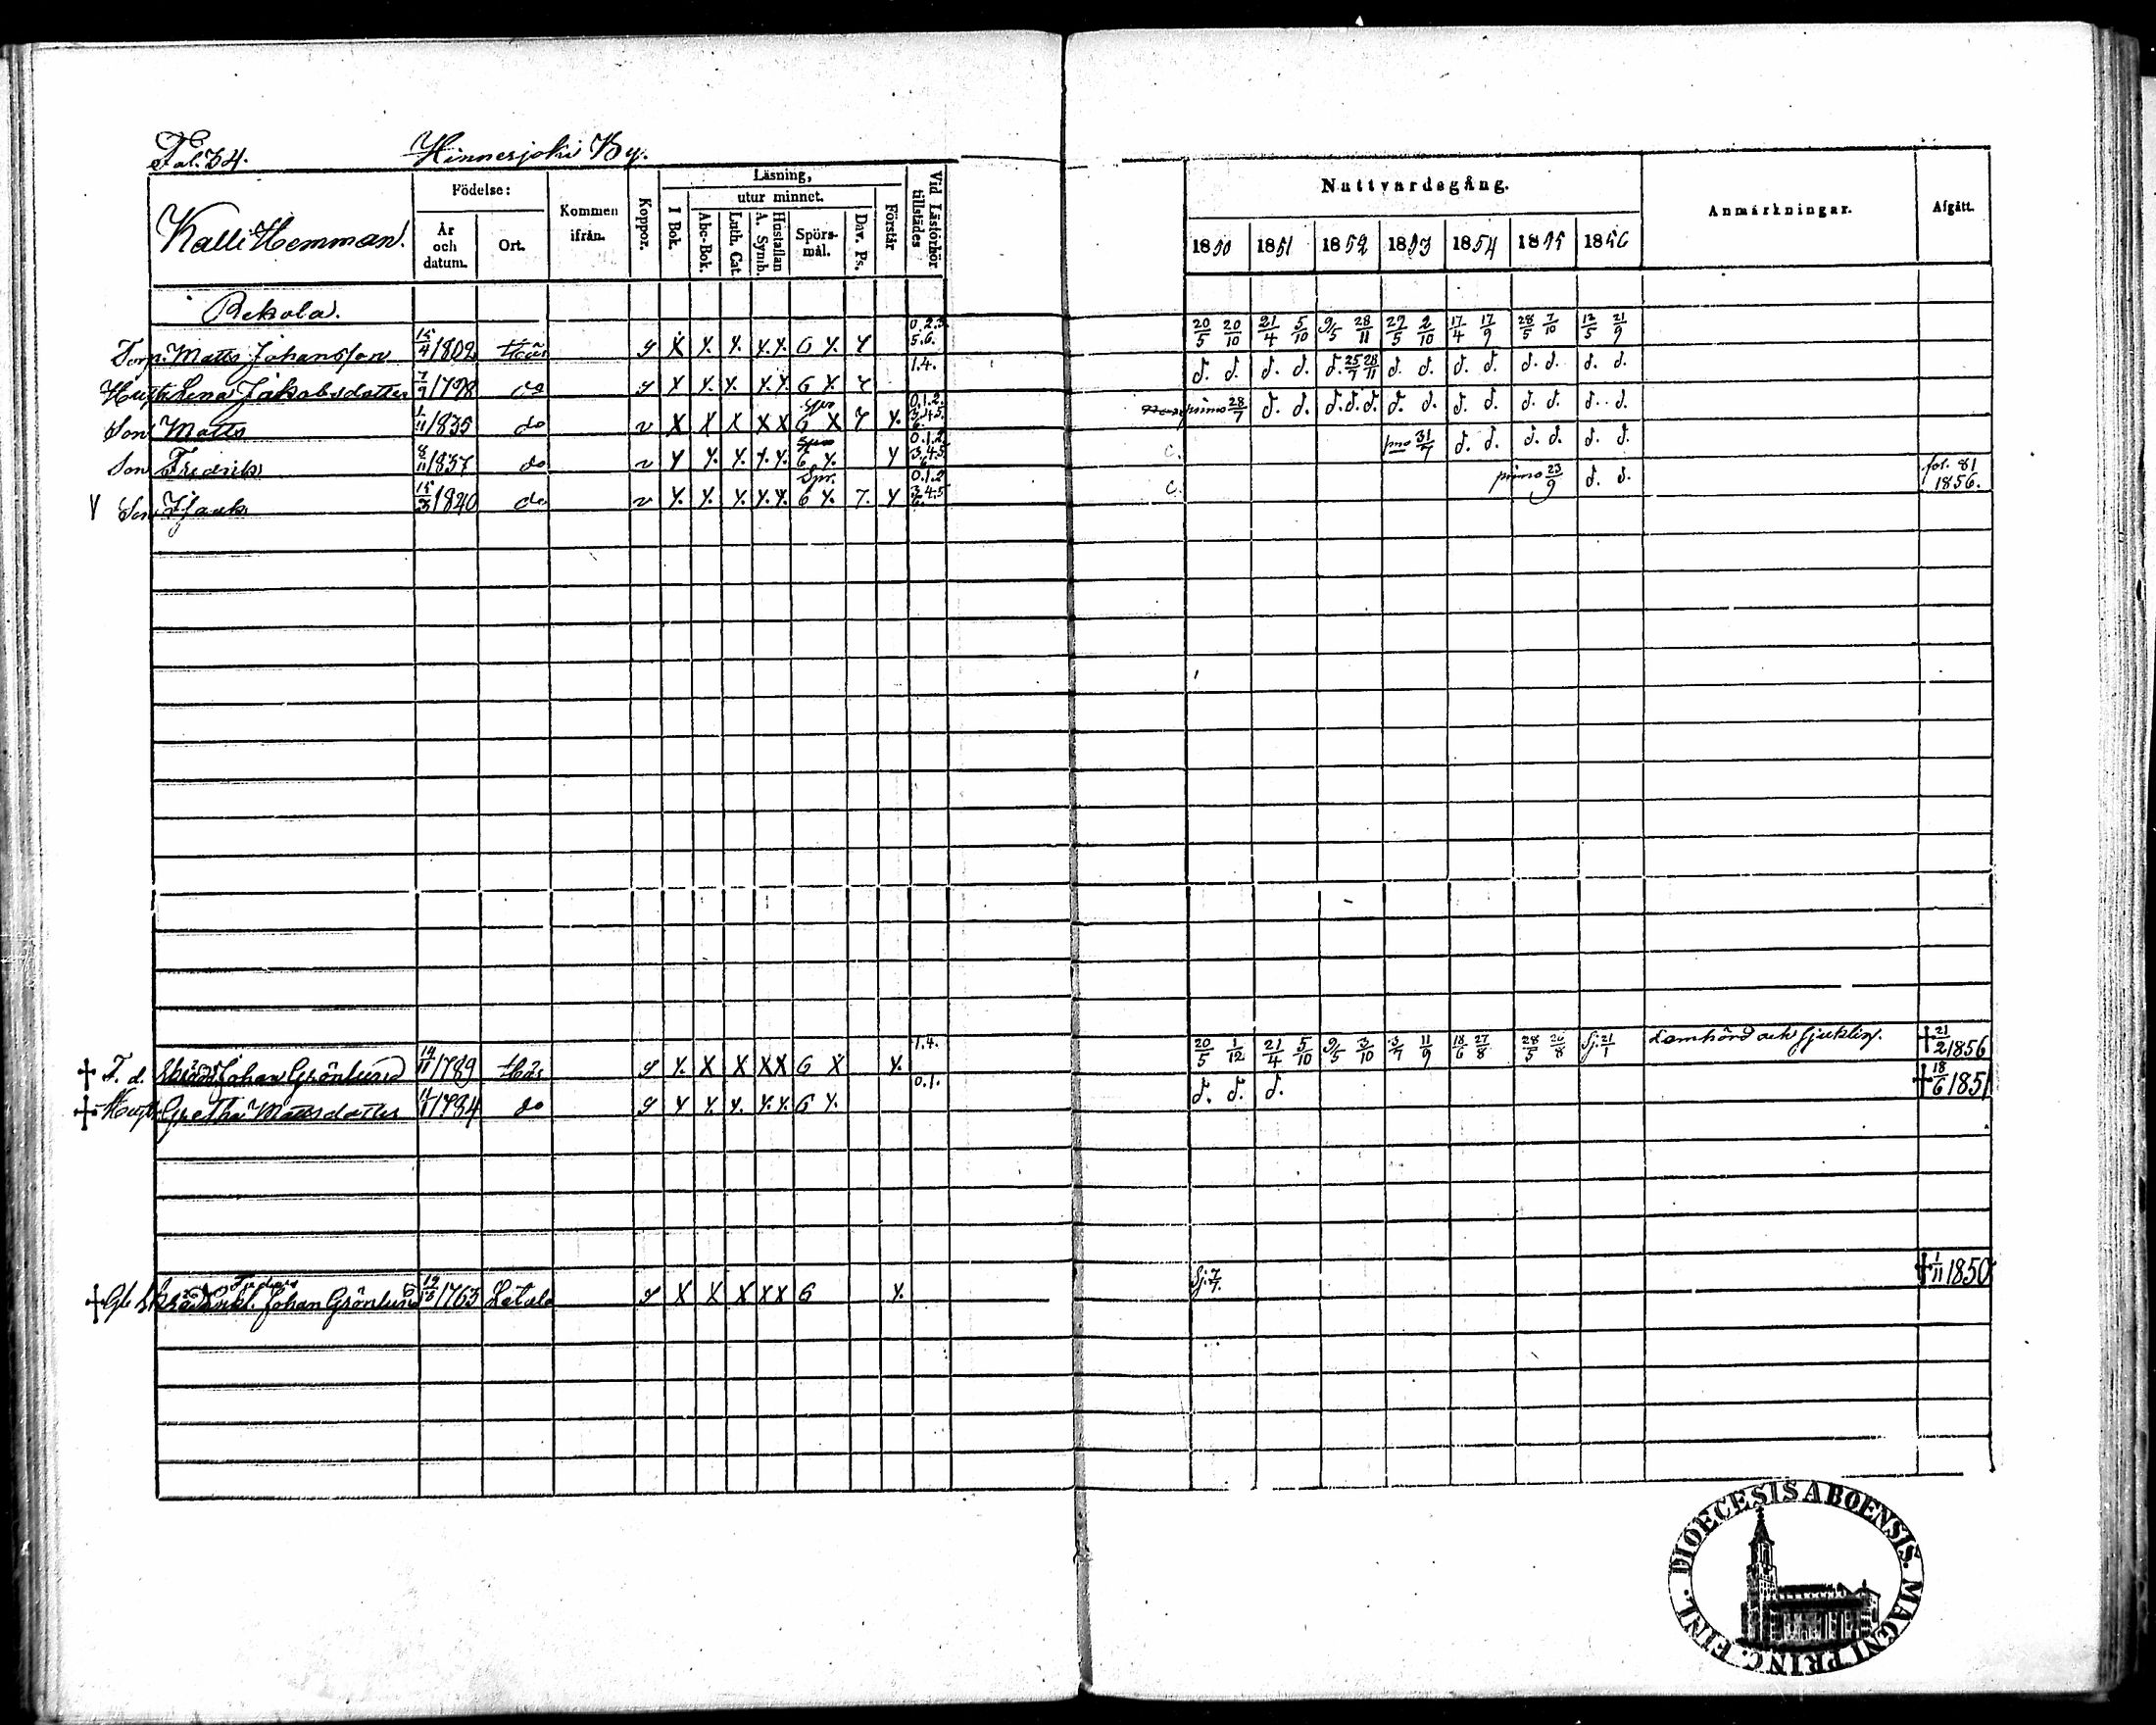 Fol. 34. Hinnerjoki By.
Kalli Hemman. Födelse: År och datum. Ort. Kommen ifrån. Koppor. Läsning, I Bok. utur minnet. Abc-Bok. Luth. Cat. Hustaflan A. Symb. Spörs-mål. Dav. Ps. Förstår Vid Läsförhör tillstädes Nattvardsgång. 1850 1851 1852 1853 1854 1855 1856 Anmärkningar. Afgått.
Rekola.
Torp. Matts Johansson 15/4 1802 Här g X Y. Y. Y. Y. G Y. Y 0.2.3. 5.6. 20/5 20/10 21/4 5/10 9/5 28/11 27/5 2/10 17/4 17/9 28/5 7/10 12/5 21/9
Hust. Lena Jakobsdotter 7/9 1798 do g X Y. Y. Y. Y. G Y. Y 1.4. d. d. d. d. d. 25/7 28/11 d. d. d. d. d. d. d. d.
Son Matts 1/11 1835 do v X X X X X G X 7 Y. 0.1.2. 3.4.5. 6. primo 28/7 d. d. d. d. d. d. d. d. d. d. d. d. d.
Son Fredrik 8/11 1837 do v Y Y. Y. Y. Y. G Y. Y 0.1.2 3.4.5 6 c. pmo 31/7 d. d. d. d. d. d.
V Son Isaak 15/3 1840 do v Y. Y. Y. Y. Y. Spr. 6 Y. 7. Y 0.1.2 3.4.5 6. c. primo 23/9 d. d. fol. 81 1856.
† F. d. Johan Grönlund 14/11 1789 Här g Y. X X X X G X Y. 1.4. 20/5 1/12 21/4 5/10 9/5 3/10 3/7 11/9 18/6 27/8 28/5 26/8 Sj. 21/1 Lomhörd och sjuklig. † 21/2 1856
† Hust. Gretha Mattsdotter 1784 do g Y Y. Y. Y. Y. G Y. 0.1. d. d. d. † 18/6 1851
† Gl. Johan Grönlund 1763 Letala g X X X X X G Y. Sj. 7/7. † 1/11 1850
DIOECESIS ABOENSIS. MAGNI PRINC. FINL.